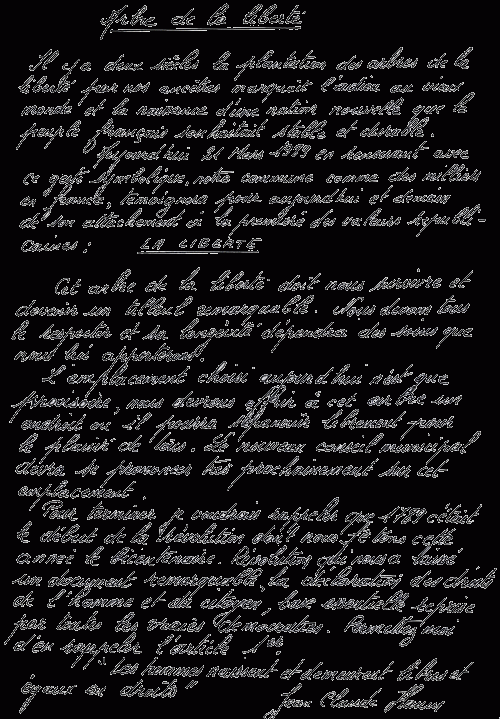 Arbre de la liberté
Il y a deux siècles la plantation des arbres de la
liberté par nos ancêtres marquait l'adieu au vieux
monde et la naissance d'une nation nouvelle que le
peuple français souhaitait stable et durable.
Aujourd'hui 21 Mars 1989 en renouant avec
ce geste symbolique, notre commune comme des milliers
en France, témoignera pour aujourd'hui et demain
de son attachement à la première des valeurs républi-
caines :
LA LIBERTÉ
Cet arbre de la liberté doit nous survivre et
devenir un tilleul remarquable. Nous devons tous
le respecter et sa longévité dépendra des soins que
nous lui apporterons.
L'emplacement choisi aujourd'hui n'est que
provisoire, nous devrons offrir à cet arbre un
endroit où il pourra s'épanouir librement pour
le plaisir de tous. Le nouveau conseil municipal
devra se prononcer très prochainement sur cet
emplacement.
Pour terminer, je voudrais rappeler que 1789 c'était
le début de la révolution dont nous fêtons cette
année le bicentenaire. Révolution qui nous a laissé
un document remarquable, la déclaration des droits
de l'homme et du citoyen, base essentielle reprise
par toutes les vraies démocraties. Permettez moi
d'en rappeler l'article 1er
"Les hommes naissent et demeurent libres et
égaux en droits"
Jean Claude